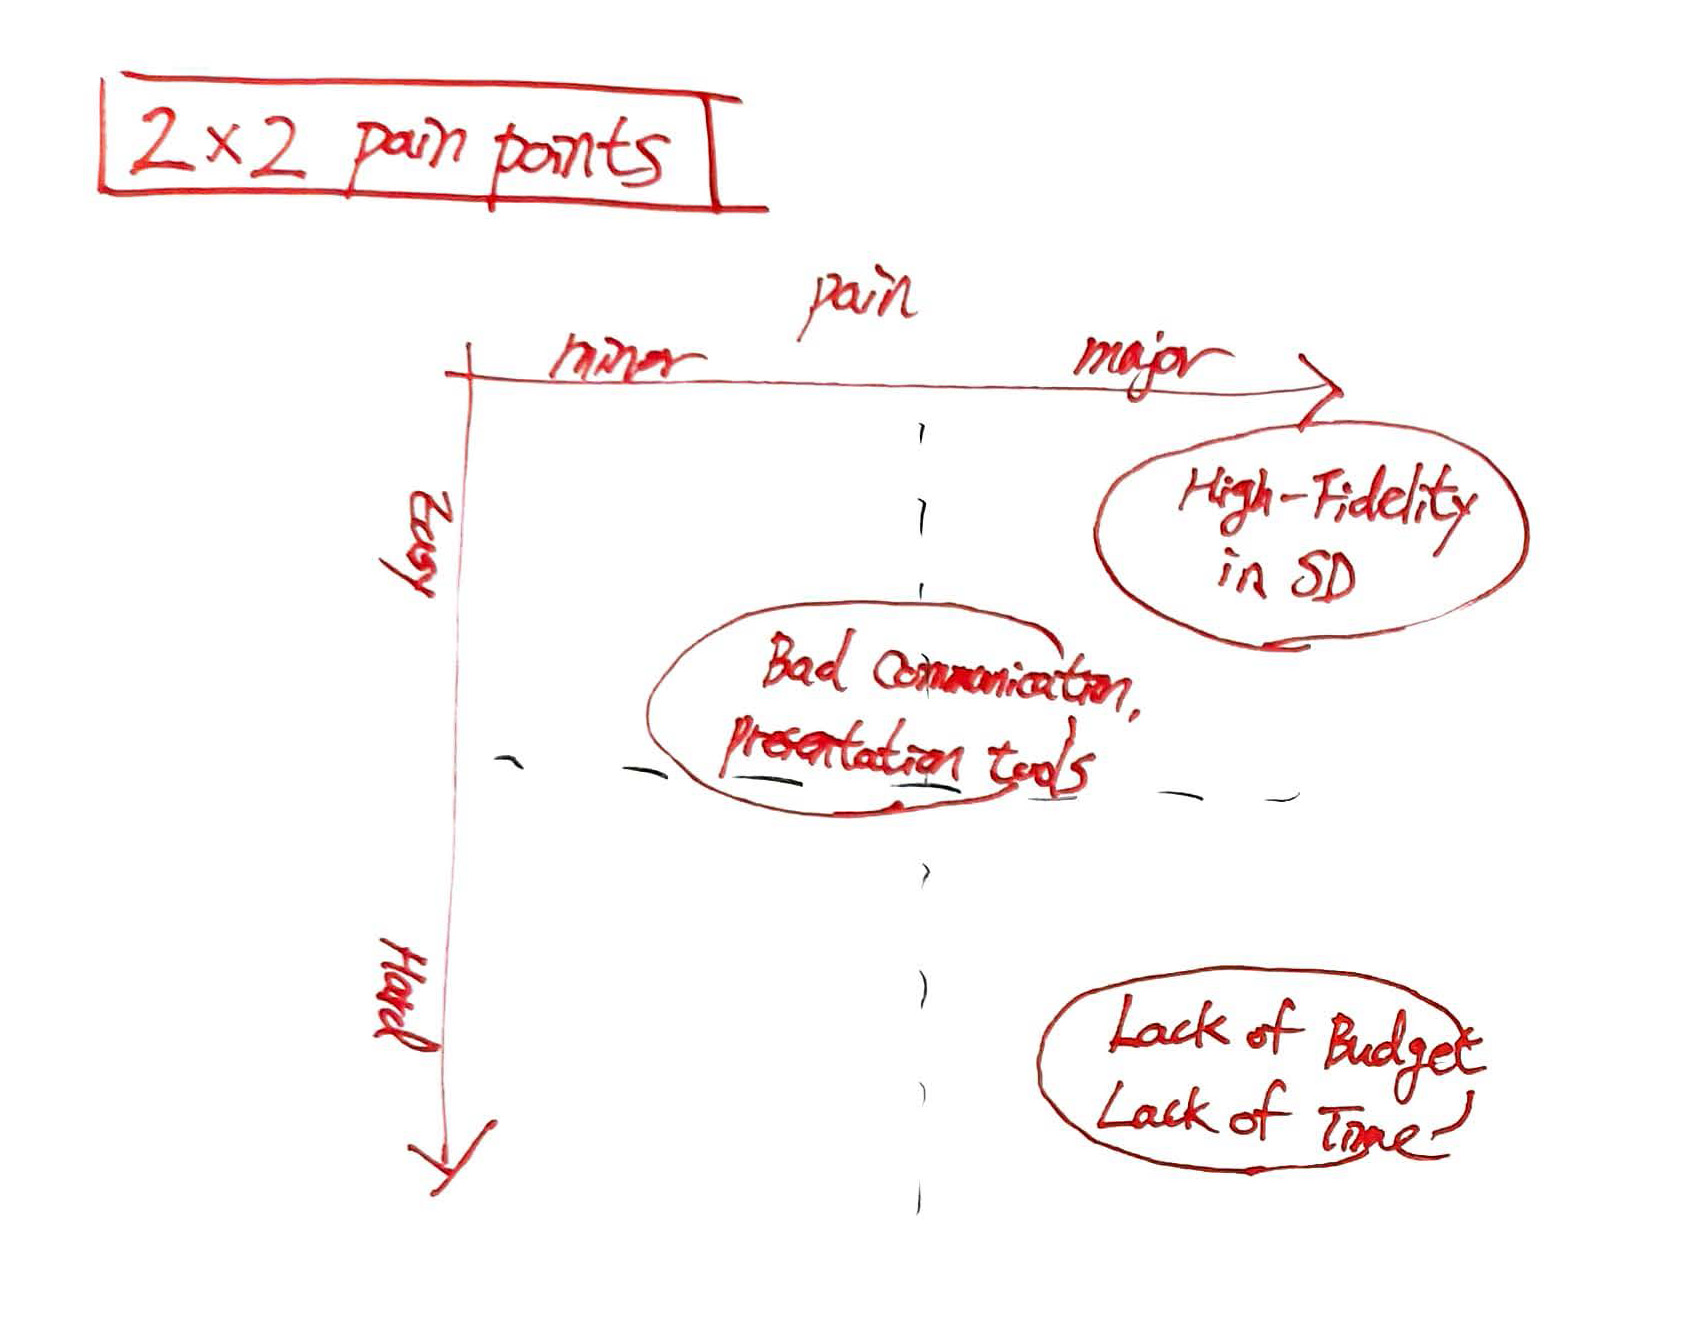 2×2 pain points
pain
minor
major
Easy
High-Fidelity
in SD
Bad Communication,
Presentation tools
Hard
Lack of Budget
Lack of Time